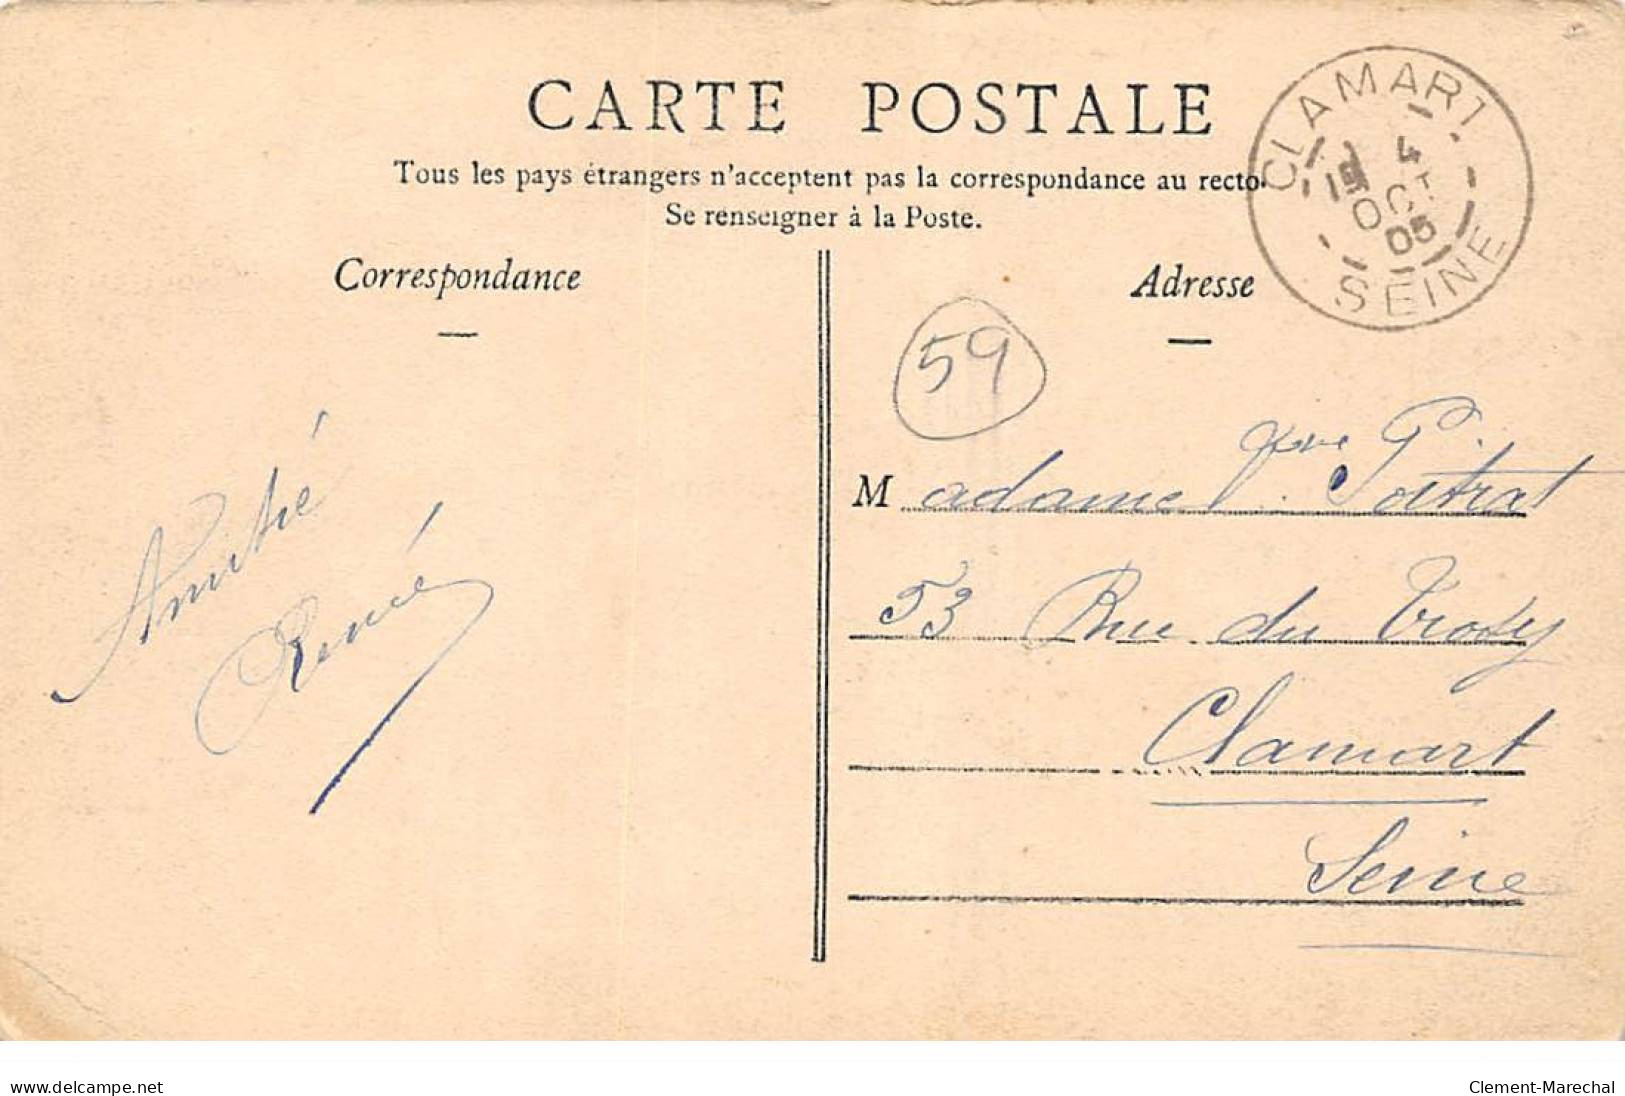 CARTE POSTALE
Tous les pays étrangers n'acceptent pas la correspondance au recto.
Se renseigner à la Poste.
CLAMART
1RE 4
OCT
05
SEINE
Correspondance
Adresse
59
Amitié
René
Madame Poitrat
53 Rue du Trosy
Clamart
Seine
www.delcampe.net
Clement-Marechal